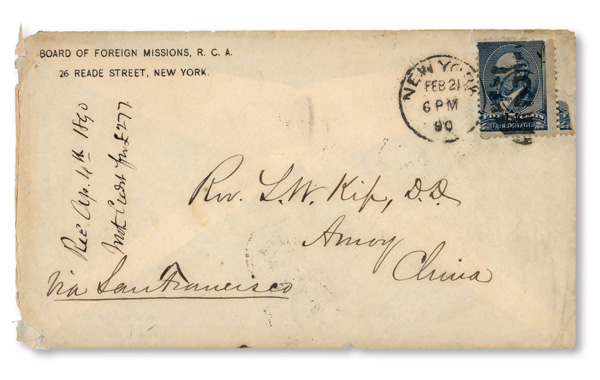 BOARD OF FOREIGN MISSIONS, R. C. A.
26 READE STREET, NEW YORK.
NEW YORK
FEB 21
6 PM
90
Rec. Ap. 4th 1890
Rev. L. W. Kip, D.D.
Amoy
China
via San Francisco